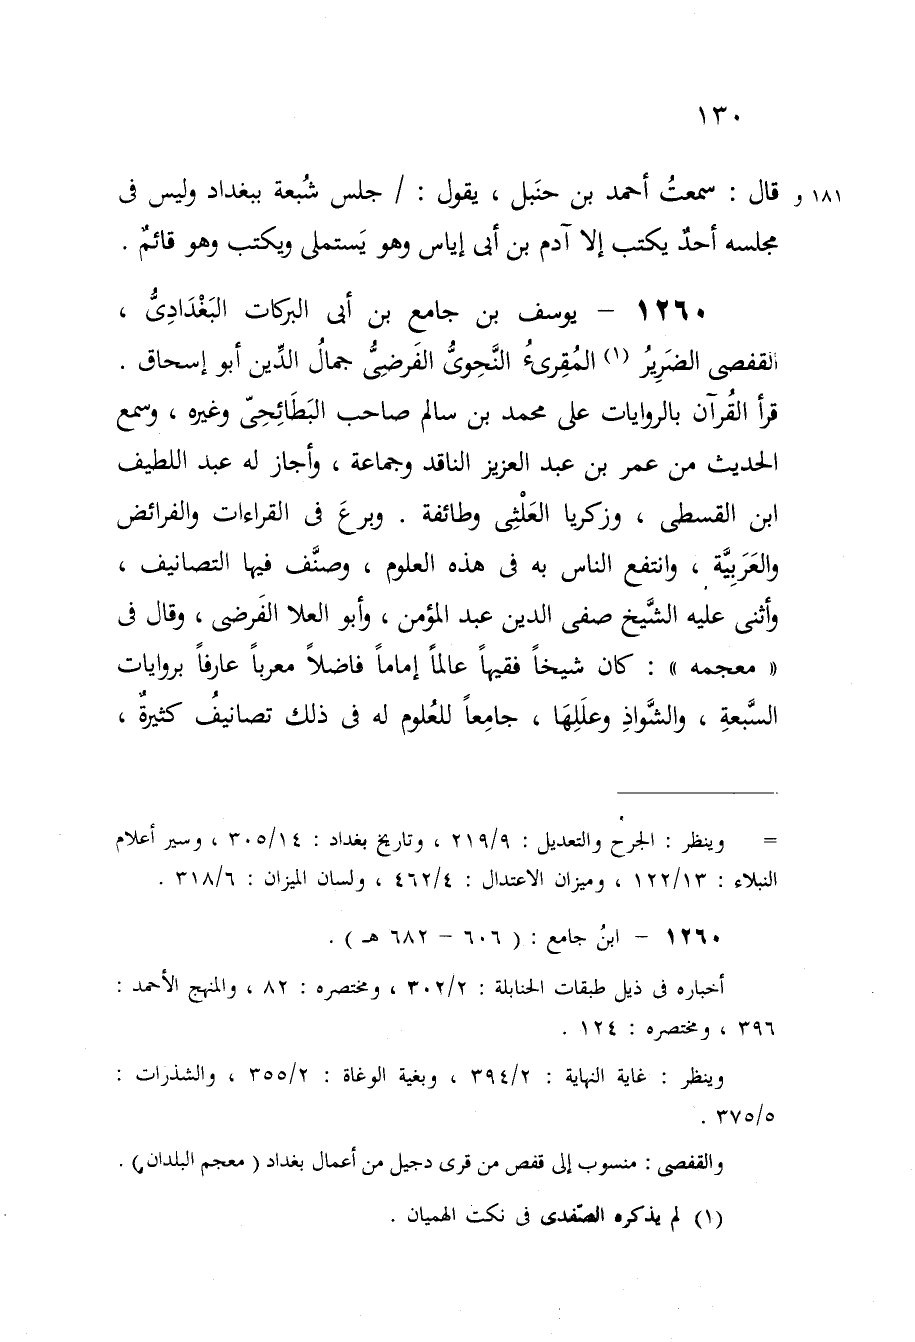 ١٣٠
١٨١ و قال : سمعتُ أحمد بن حنَبل ، يقول : / جلس شُبعة ببغداد وليس فى
مجلسه أحدٌ يكتب إلا آدم بن أبى إياس وهو يَستملى ويكتب وهو قائمٌ .
١٢٦٠ – يوسف بن جامع بن أبى البركات البَغْدَادِىُّ ،
القفصى الضَرِيرُ (١) المُقِرىءُ النَّحوىُّ الفَرضِىُّ جمالُ الدِّين أبو إسحاق .
قرأ القُرآن بالروايات على محمد بن سالم صاحب البَطَائِحِىّ وغيره ، وسمع
الحديث من عمر بن عبد العزيز الناقد وجماعة ، وأجاز له عبد اللطيف
ابن القسطى ، وزكريا العَلْثِى وطائفة . وبرعَ فى القراءات والفرائض
والعَرَبِيَّة ، وانتفع الناس به فى هذه العلوم ، وصنَّف فيها التصانيف ،
وأثنى عليه الشَّيخ صفى الدين عبد المؤمن ، وأبو العلا الفَرضى ، وقال فى
« معجمه » : كان شيخاً فقيهاً عالماً إماماً فاضلاً معرباً عارفاً بروايات
السَّبعةِ ، والشَّواذِ وعلَلِهَا ، جامِعاً للعُلوم له فى ذلك تصانيفُ كثيرةٌ ،
= وينظر : الجرح والتعديل : ٢١٩/٩ ، وتاريخ بغداد : ٣٠٥/١٤ ، وسير أعلام
النبلاء : ١٢٢/١٣ ، وميزان الاعتدال : ٤٦٢/٤ ، ولسان الميزان : ٣١٨/٦ .
١٢٦٠ – ابنُ جامع : ( ٦٠٦ – ٦٨٢ هـ ) .
أخباره فى ذيل طبقات الحنابلة : ٣٠٢/٢ ، ومختصره : ٨٢ ، والمنهج الأحمد :
٣٩٦ ، ومختصره : ١٢٤ .
وينظر : غاية النهاية : ٣٩٤/٢ ، وبغية الوغاة : ٣٥٥/٢ ، والشذرات :
٣٧٥/٥ .
والقفصى : منسوب إلى قفص من قرى دجيل من أعمال بغداد ( معجم البلدان ) .
(١) لم يذكره الصّفدى فى نكت الهميان .